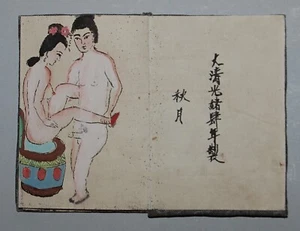 大清光緒肆年製
秋月